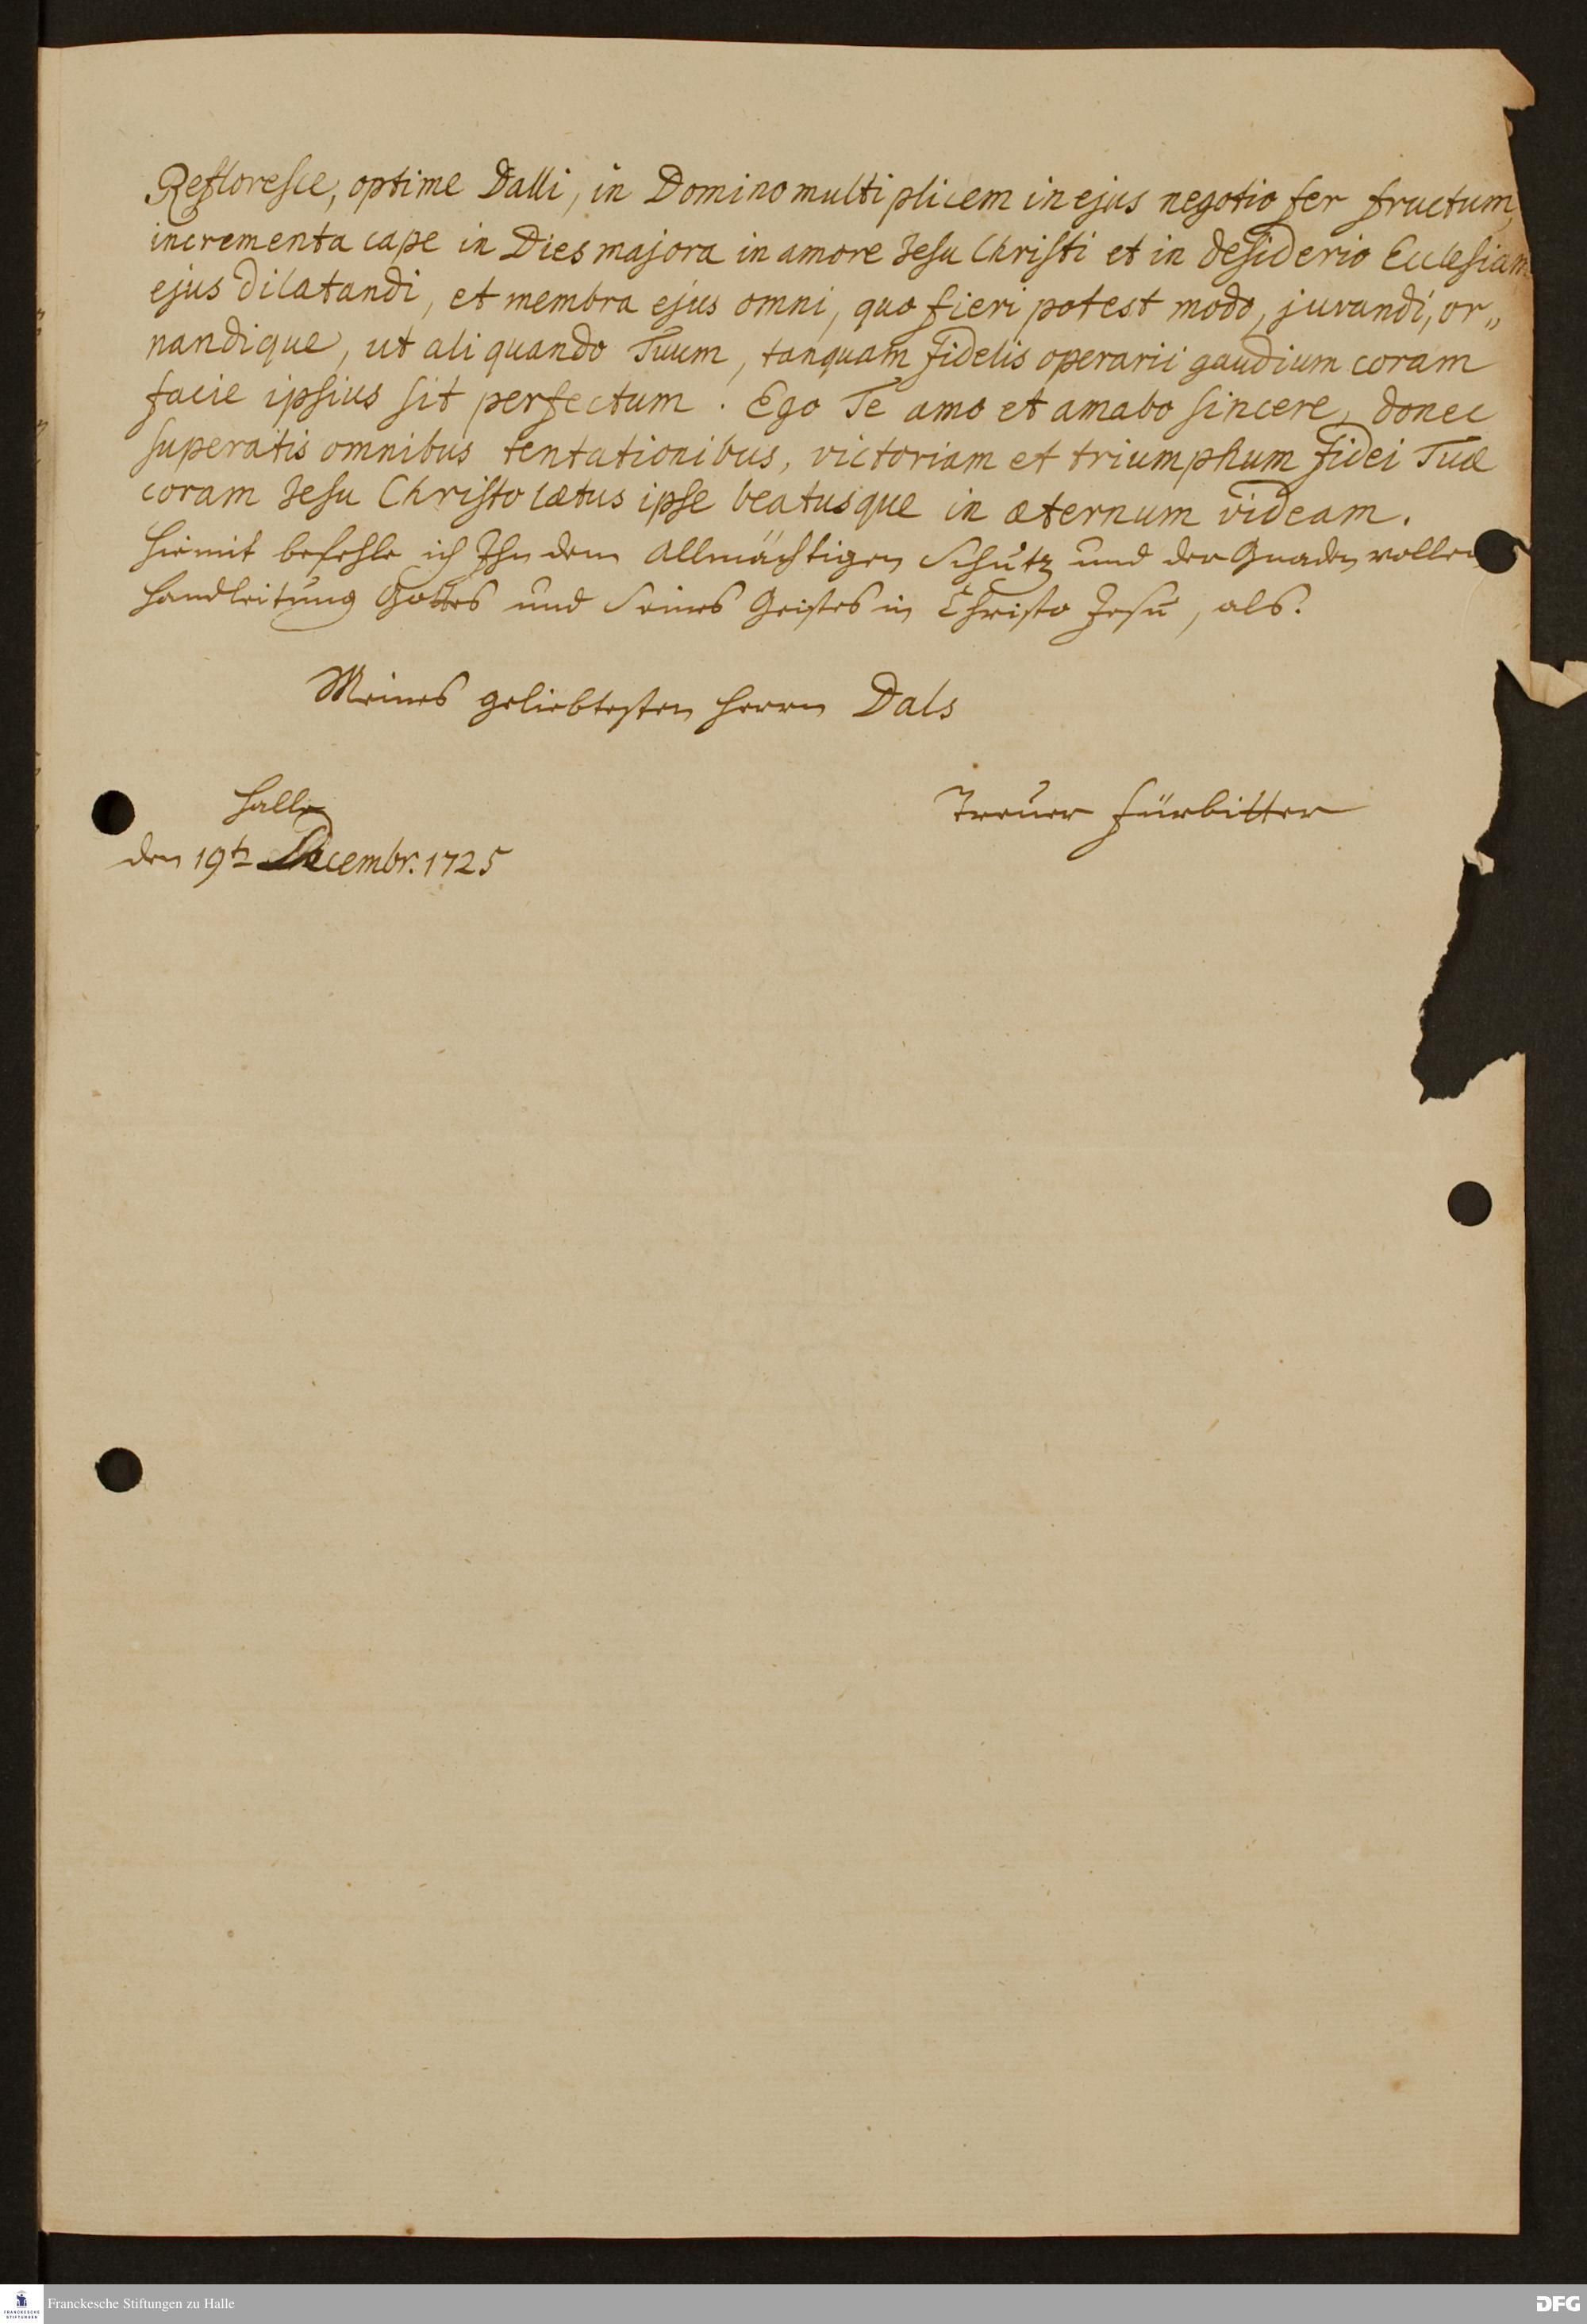 Refloresce, optime Dalli, in Domino multiplicem in ejus negotio fer fructum,
incrementa cape in Dies majora in amore Jesu Christi et in desiderio Ecclesiam
ejus dilatandi, et membra ejus omni, quo fieri potest modo, juvandi, or„
nandique, ut aliquando Tuum, tanquam fidelis operarii gaudium coram
facie ipsius sit perfectum. Ego Te amo et amabo sincere, donec
superatis omnibus tentationibus, victoriam et triumphum fidei Tuæ
coram Jesu Christo lætus ipse beatusque in æternum videam.
Hiemit befehle ich Ihn dem Allmächtigen Schutz und der Gnaden vollen
Handleitung Gottes und Seines Geistes in Christo Jesu, als.
Meines geliebtesten Herrn Dals
Treuer Fürbitter
Halle
den 19t Decembr. 1725
Franckesche Stiftungen zu Halle
FRANCKESCHE STIFTUNGEN
DFG